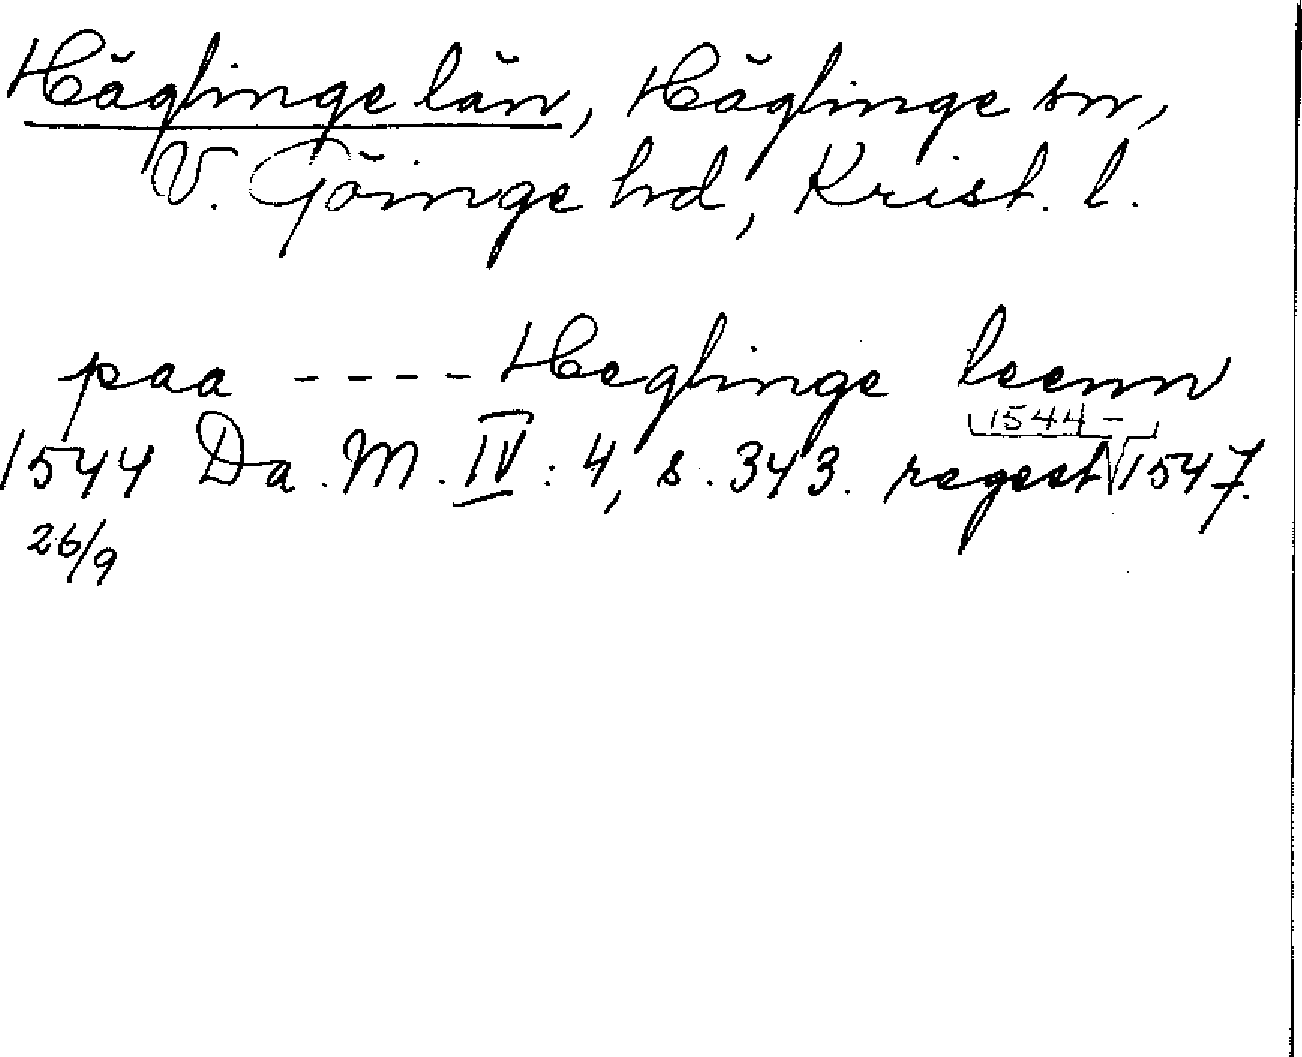 Häglinge län, Häglinge sn,
V. Göinge hd, Krist. l.
paa ---- Heglinge leenn
1544 –
1544 Da. M. IV : 4, s. 343. regest 1547.
26/9